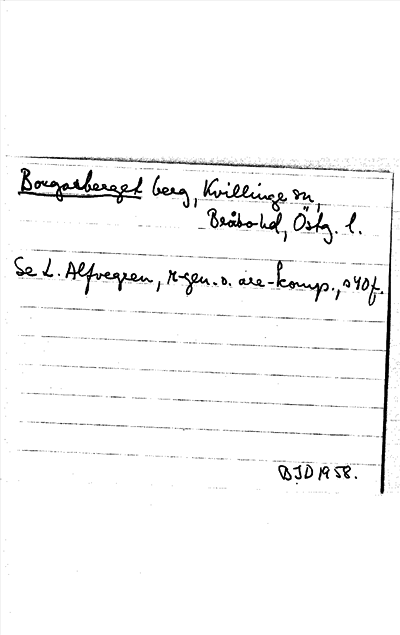 Borgarberget berg, Kvillinge sn,
Bråbo hd, Östg. l.
Se L. Alfvegren, r-gen. o. are-komp., s 40 f.
BJD 1958.